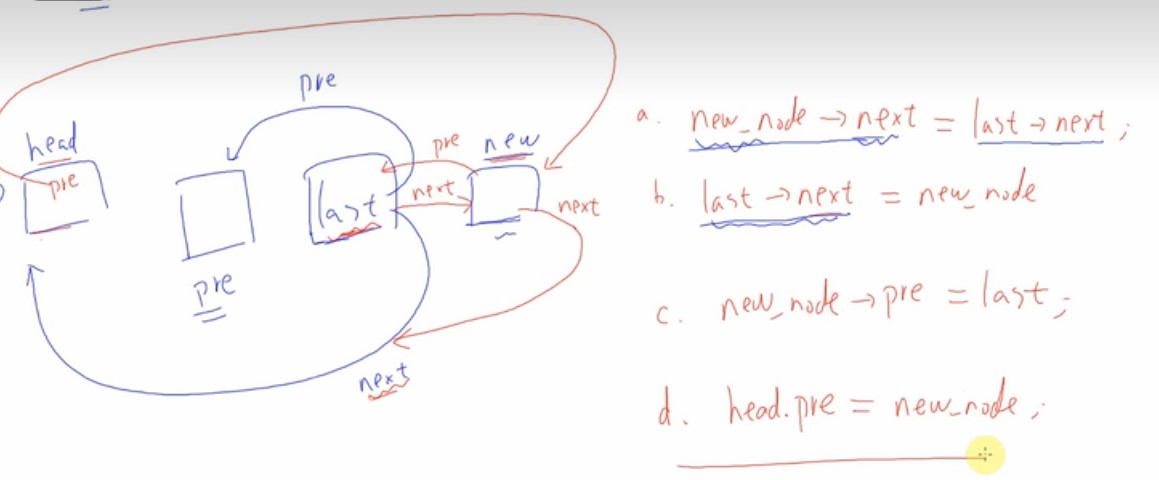 pre
head
pre
new
pre
last
next
next
pre
next
a. new_node → next = last → next ;
b. last → next = new_node
c. new_node → pre = last ;
d. head.pre = new_node ;